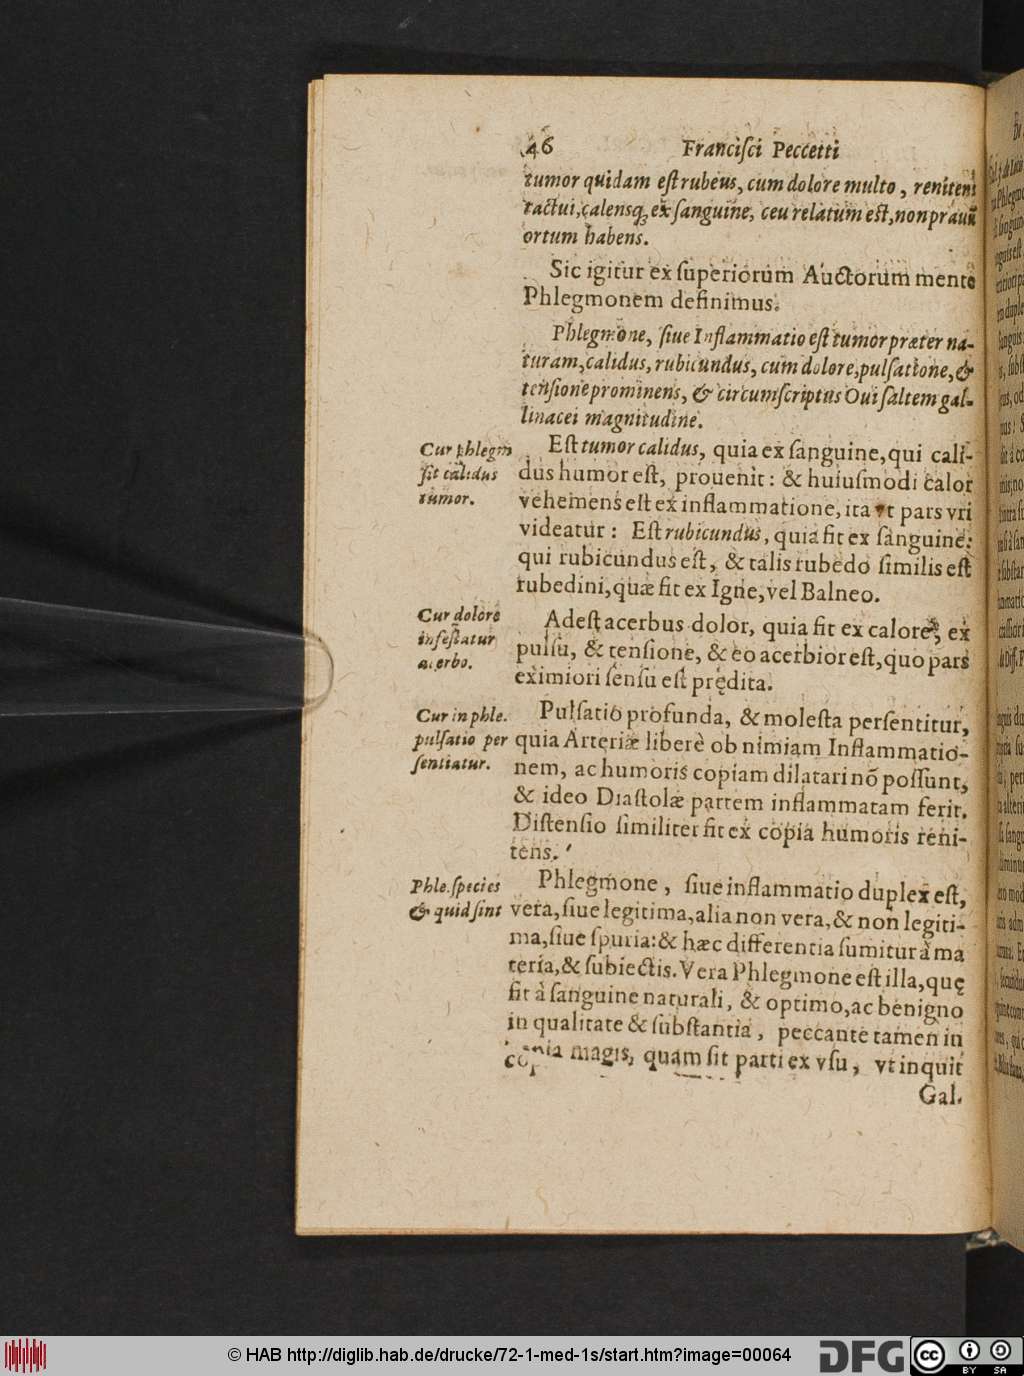 46 Franciſci Peccetti
tumor quidam eſt rubeus, cum dolore multo, reniteni
tactui, calensq; ex ſanguine, ceu relatum eſt, non prauū
ortum habens.
Sic igitur ex ſuperiorum Auctorum mente
Phlegmonem definimus.
Phlegmone, ſiue Inflammatio eſt tumor præter na-
turam, calidus, rubicundus, cum dolore, pulſatione, &
tenſione prominens, & circumſcriptus Oui ſaltem gal-
linacei magnitudine.
Cur phlegm
ſit calidus
tumor.
Eſt tumor calidus, quia ex ſanguine, qui cali-
dus humor eſt, prouenit: & huiuſmodi calor
vehemens eſt ex inflammatione, ita vt pars vri
videatur: Eſt rubicundus, quia fit ex ſanguine:
qui rubicundus eſt, & talis rubedo ſimilis eſt
rubedini, quæ fit ex Igne, vel Balneo.
Cur dolore
infeſtatur
acerbo.
Adeſt acerbus dolor, quia fit ex calore, ex
pulſu, & tenſione, & eo acerbior eſt, quo pars
eximiori ſenſu eſt prędita.
Cur in phle.
pulſatio per
ſentiatur.
Pulſatio profunda, & moleſta perſentitur,
quia Arteriæ liberè ob nimiam Inflammatio-
nem, ac humoris copiam dilatari nō poſſunt,
& ideo Diaſtolæ partem inflammatam ferit.
Diſtenſio ſimiliter fit ex copia humoris reni-
tens.
Phle. ſpecies
& quid ſint
Phlegmone, ſiue inflammatio duplex eſt,
vera, ſiue legitima, alia non vera, & non legiti-
ma, ſiue ſpuria: & hæc differentia ſumitur à ma
teria, & ſubiectis. Vera Phlegmone eſt illa, quę
fit à ſanguine naturali, & optimo, ac benigno
in qualitate & ſubſtantia, peccante tamen in
copia magis, quam ſit parti ex vſu, vt inquit
Gal.
© HAB http://diglib.hab.de/drucke/72-1-med-1s/start.htm?image=00064
DFG
cc
BY SA